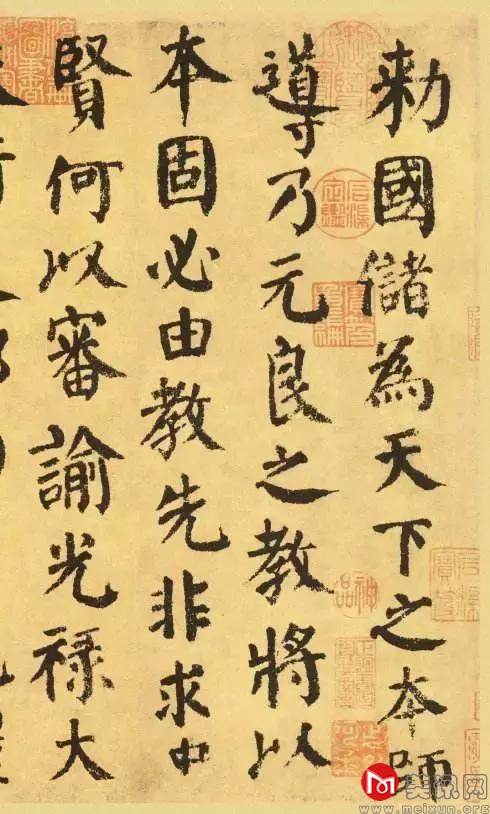 勅國儲為天下之本師
導乃元良之教將以
本固必由教先非求中
賢何以審諭光禄大
神品
美讯网
www.meixun.org